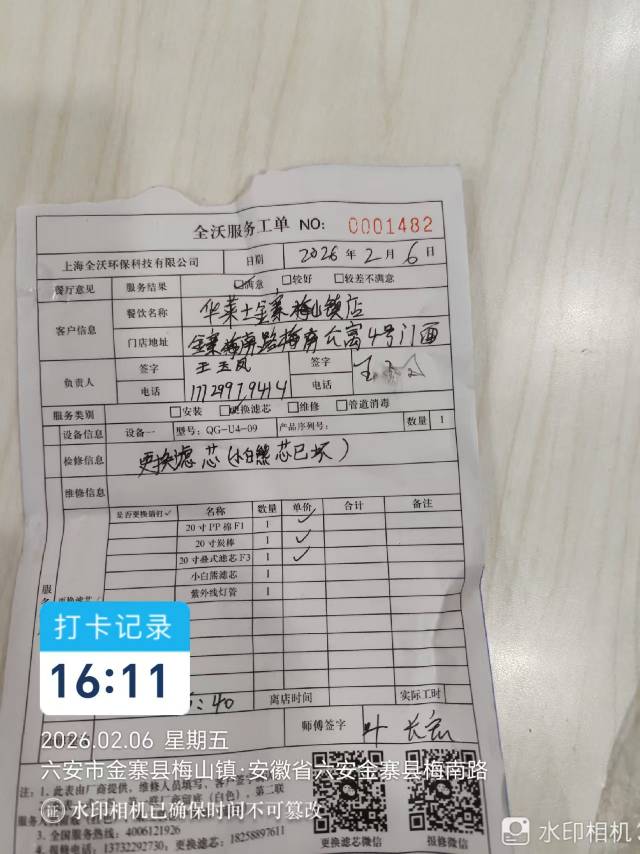 全沃服务工单 NO: 0001482
上海全沃环保科技有限公司 日期 2026 年 2 月 6 日
餐厅意见 服务结果 ☑满意 □较好 □较差不满意
客户信息 餐饮名称 华莱士金寨梅山镇店
门店地址 金寨梅南路梅南公寓4号门面
负责人 签字 王玉凤 签字
电话 17729979414 电话
服务类别 □安装 ☑更换滤芯 □维修 □管道消毒
设备信息 设备一 型号: QG-U4-09 产品序列号: 数量 1
检修信息 更换滤芯(小白熊芯已坏)
维修信息
是否更换请打✓ 名称 数量 单价 合计 备注
20寸PP棉F1 1 ✓
20寸炭棒 1 ✓
20寸叠式滤芯F3 1 ✓
小白熊滤芯 1
紫外线灯管 1
服
更换滤芯
打卡记录
16:11
:40 离店时间 实际工时
师傅签字 叶长宏
2026.02.06 星期五
六安市金寨县梅山镇·安徽省六安金寨县梅南路
注: 1. 此表由厂商提供, 维修人员填写
(白色), 第二联
水印相机已确保时间不可篡改
3. 全国服务热线: 4006121926
4. 报修电话: 13732292730; 更换滤芯: 18258897611
更换滤芯微信 报修微信
水印相机